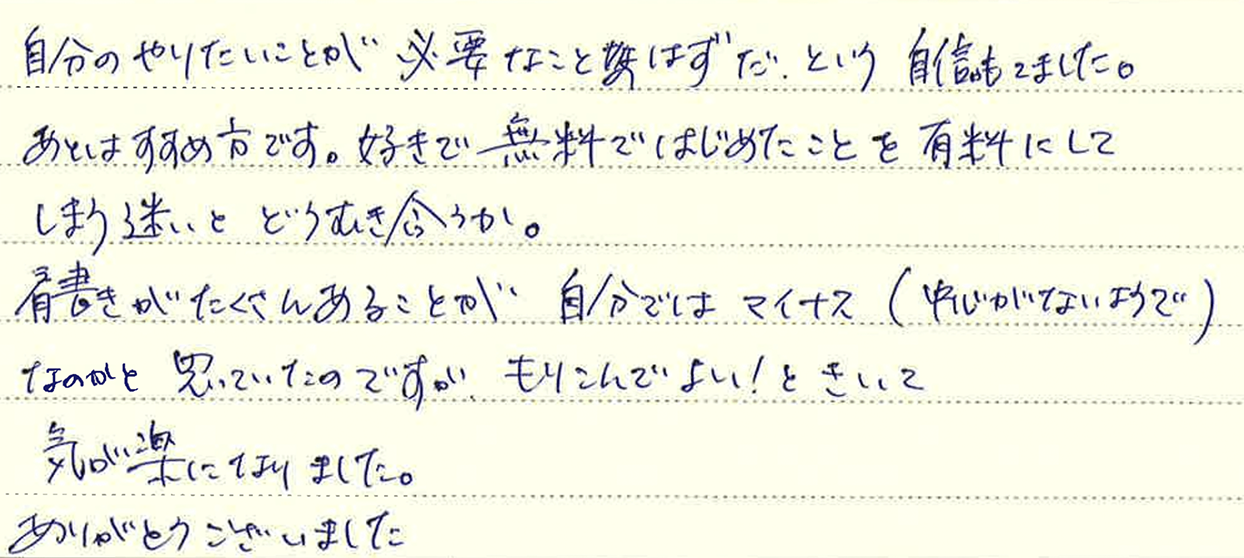 自分のやりたいことが必要なことなはずだ、という自信もてました。
あとはすすめ方です。好きで無料ではじめたことを有料にして
しまう迷いとどうむき合うか。
肩書きがたくさんあることが自分ではマイナス(中心がないようで)
なのかと思っていたのですが、もりこんでよい!ときいて
気が楽になりました。
ありがとうございました